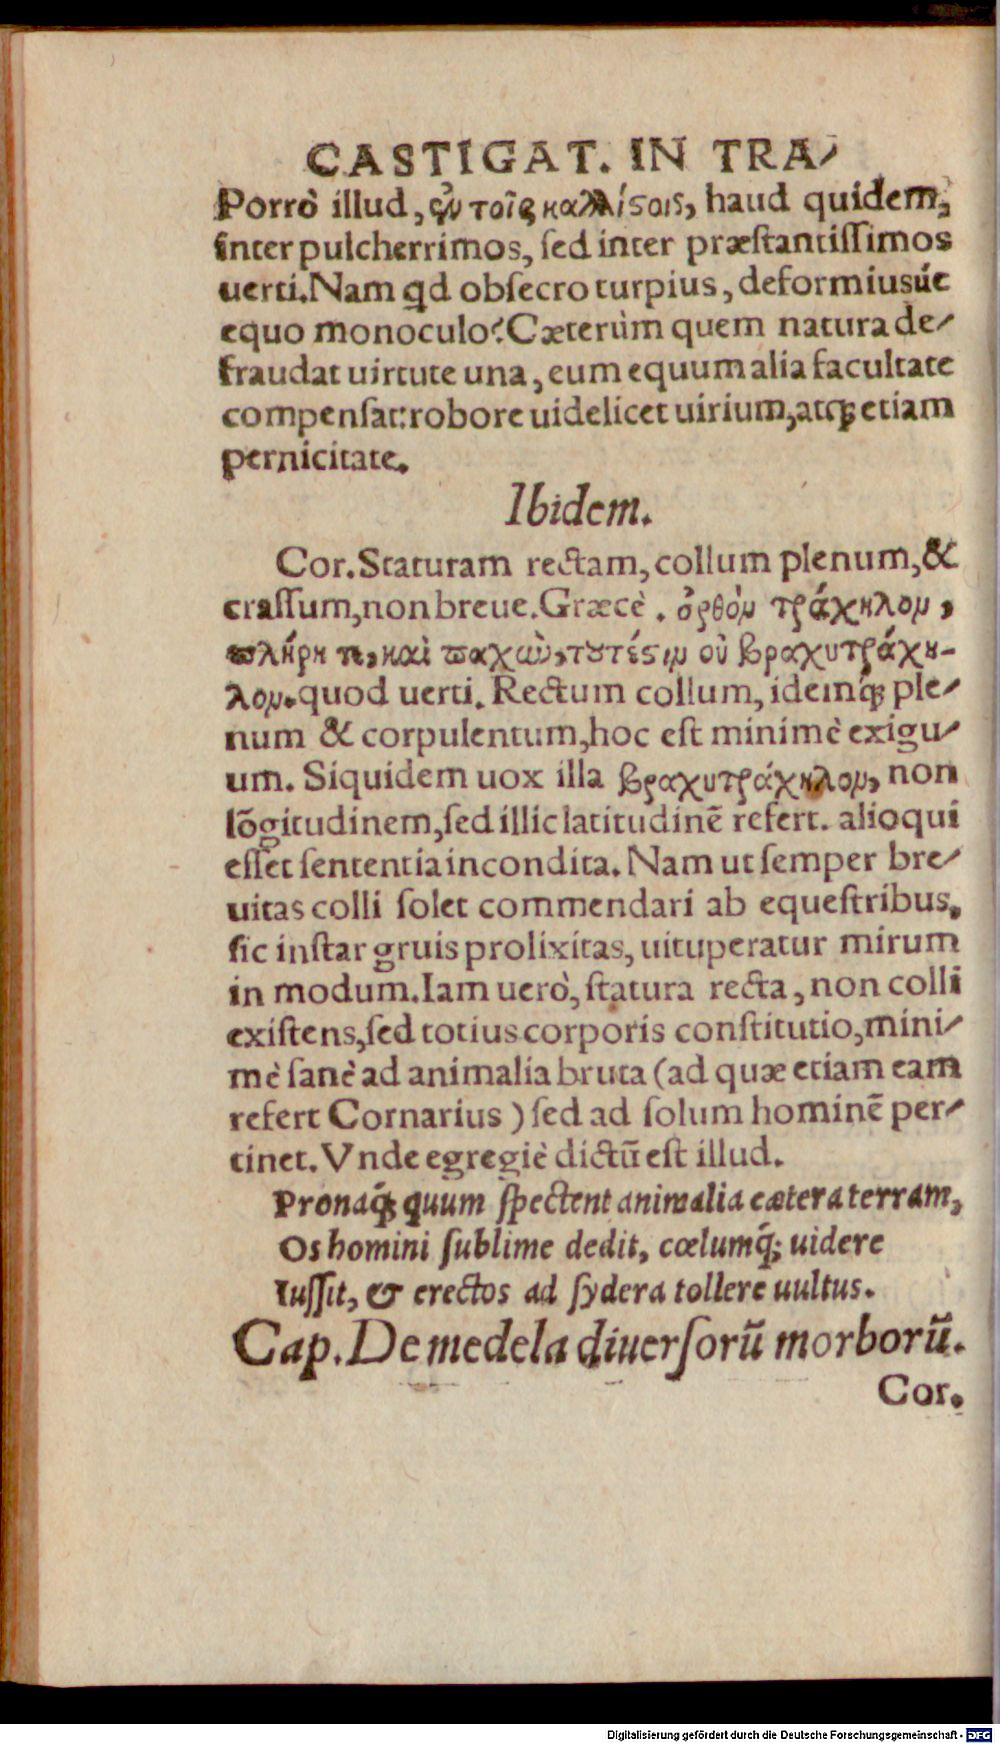 CASTIGAT. IN TRA-
Porrò illud, ἐν τοῖς καλλίϛοις, haud quidem,
inter pulcherrimos, ſed inter præſtantiſſimos
uerti. Nam qd obſecro turpius, deformiusúe
equo monoculo? Cæterùm quem natura de-
fraudat uirtute una, eum equum alia facultate
compenſat: robore uidelicet uirium, atq; etiam
pernicitate.
Ibidem.
Cor. Staturam rectam, collum plenum, &
craſſum, non breue. Græcè. ὀρθὸν τράχηλον,
πλήρη τι, καὶ παχὼ, τουτέϛιν οὐ βραχυτράχη-
λον. quod uerti. Rectum collum, idemq́; ple-
num & corpulentum, hoc eſt minimè exigu-
um. Siquidem uox illa βραχυτράχηλον, non
lõgitudinem, ſed illic latitudinẽ refert. alioqui
eſſet ſententia incondita. Nam ut ſemper bre-
uitas colli ſolet commendari ab equeſtribus,
ſic inſtar gruis prolixitas, uituperatur mirum
in modum. Iam uerò, ſtatura recta, non colli
exiſtens, ſed totius corporis conſtitutio, mini-
mè ſanè ad animalia bruta (ad quæ etiam eam
refert Cornarius) ſed ad ſolum hominẽ per-
tinet. Vnde egregiè dictũ eſt illud.
Pronaq́; quum ſpectent animalia cætera terram,
Os homini ſublime dedit, cœlumq́; uidere
Iuſſit, & erectos ad ſydera tollere uultus.
Cap. De medela diuerſorũ morborũ.
Cor.
Digitalisierung gefördert durch die Deutsche Forschungsgemeinschaft - DFG